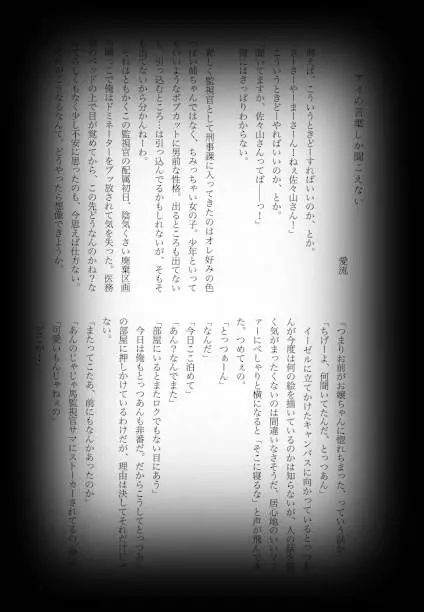 アイの言葉しか聞こえない
愛流
例えば、こういうときどーすればいいのか、とか。
まーさーやーまーさーん！ねぇ佐々山さん！
こういうときどーやればいいのか、とか。
聞いてますか、佐々山さんってばーっ！」
俺にはさっぱりわからない。
新しく監視官として刑事課に入ってきたのはオレ好みの色
っぽい姉ちゃんではなく、ちみっちゃい女の子。少年といって
もいいようなボブカットに男前な性格。出るところも出てない
も、引っ込むところ…は引っ込んでるかもしれないが、そもそ
も出てないから分かんねーわ。
それはともかくこの監視官の配属初日、陰気くさい廃棄区画
で俺はドミネーターをブッ放されて気を失った。医務
室のベッドの上で目が覚めてから、この先どうなんのかね？な
しくもなく少し不安に思ったのも、今思えば仕方ない。
がこうなるなんて、どうやったら想像できようか。
「つまりお前がお嬢ちゃんに惚れちまった、っていう話か
「ちげーよ、何聞いてたんだ、とっつぁん」
イーゼルに立てかけたキャンバスに向かっているとっつぁ
んが今度は何の絵を描いているのかは知らないが、人の話を聞
く気がまったくないのは間違いなさそうだ。居心地のいいソフ
ァーにべしゃりと横になると「そこに寝るな」と声が飛んでき
た。つめてぇの。
「とっつぁーん」
「なんだ」
「今日ここ泊めて」
「あん？なんでまた」
「部屋にいるとまたロクでもない目にあう」
今日は俺もとっつあんも非番だ。だからこうしてとっつあん
の部屋に押しかけているわけだが、理由は決してそれだけじゃ
ない。
「またってこたあ、前にもなんかあったのか」
「あんのじゃじゃ馬監視官サマにストーカーされてるの
「可愛いもんじゃねぇの」